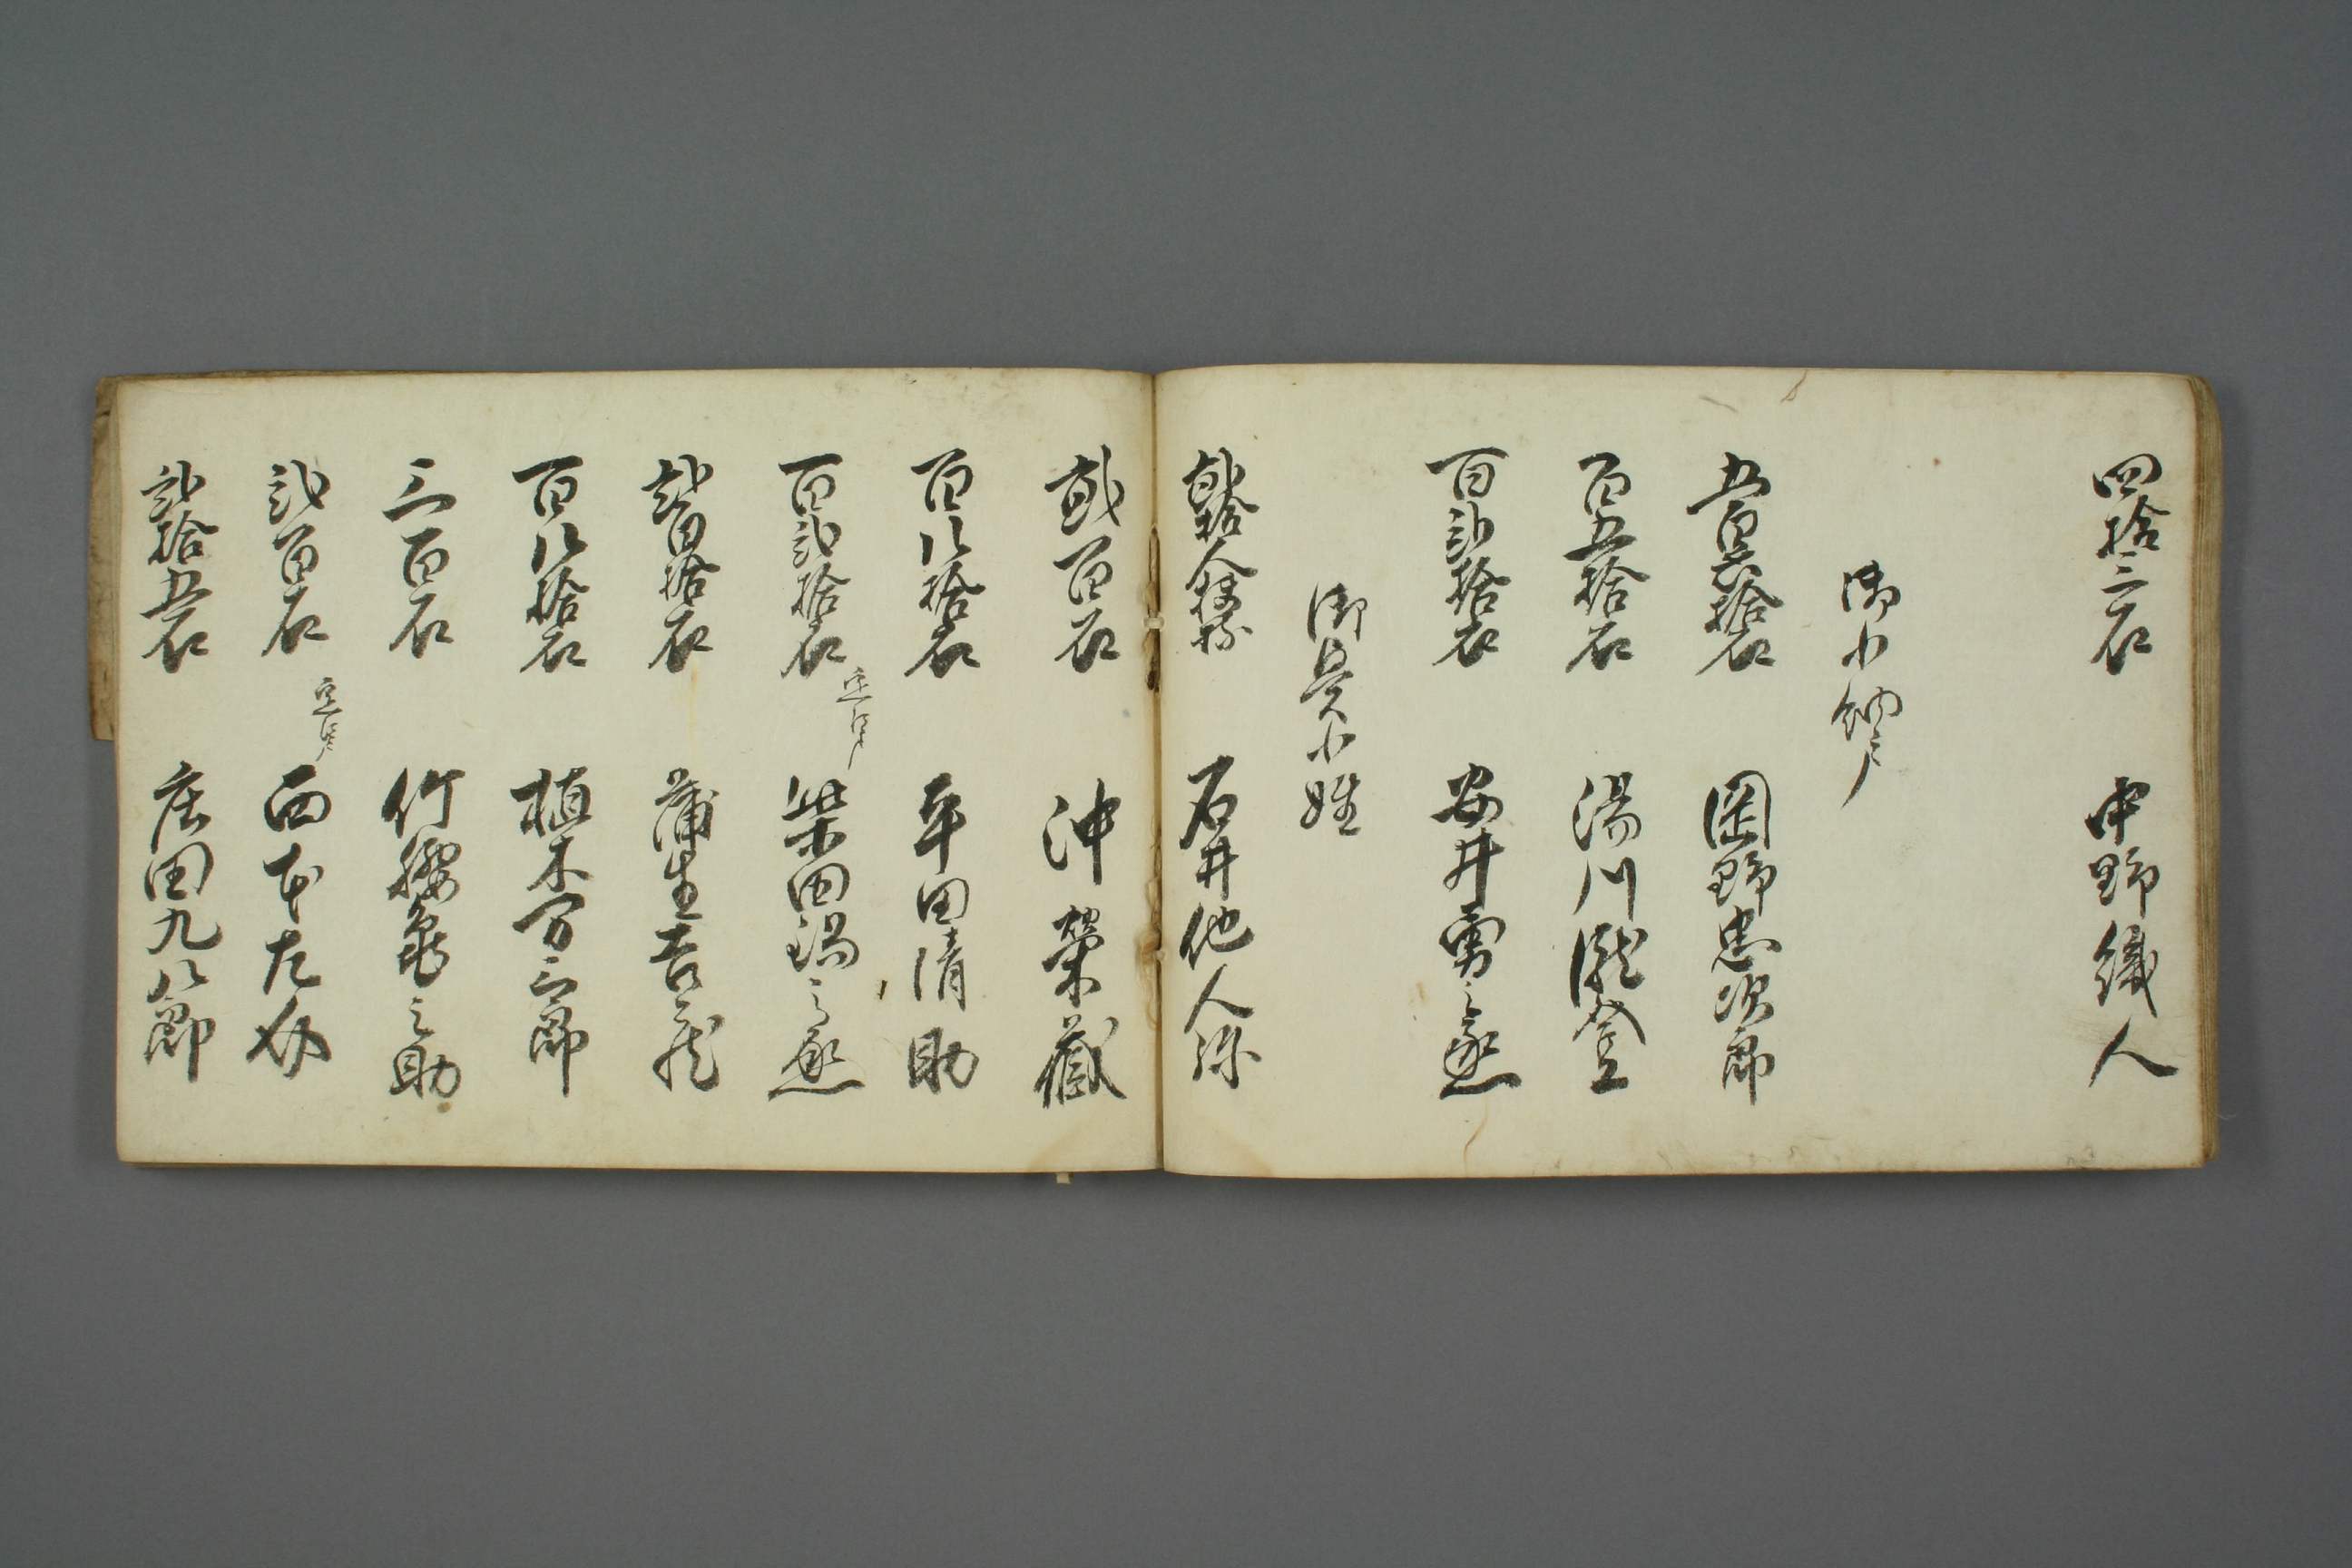 四拾三石 中野織人
御小納戸
五百六拾石 岡野忠次郎
百五拾石 湯川瀧登
百弐拾石 安井勇之丞
御奥小姓
拾人扶持 石井他人弥
弐百石 沖榮蔵
百八拾石 平田清助
百弐拾石 定江戸 柴田鍋之丞
弐百拾石 蒲生吉之
百八拾石 植木万三郎
三百石 竹腰亀之助
弐百石 定江戸 西本左
弐拾五石 庄田九八郎